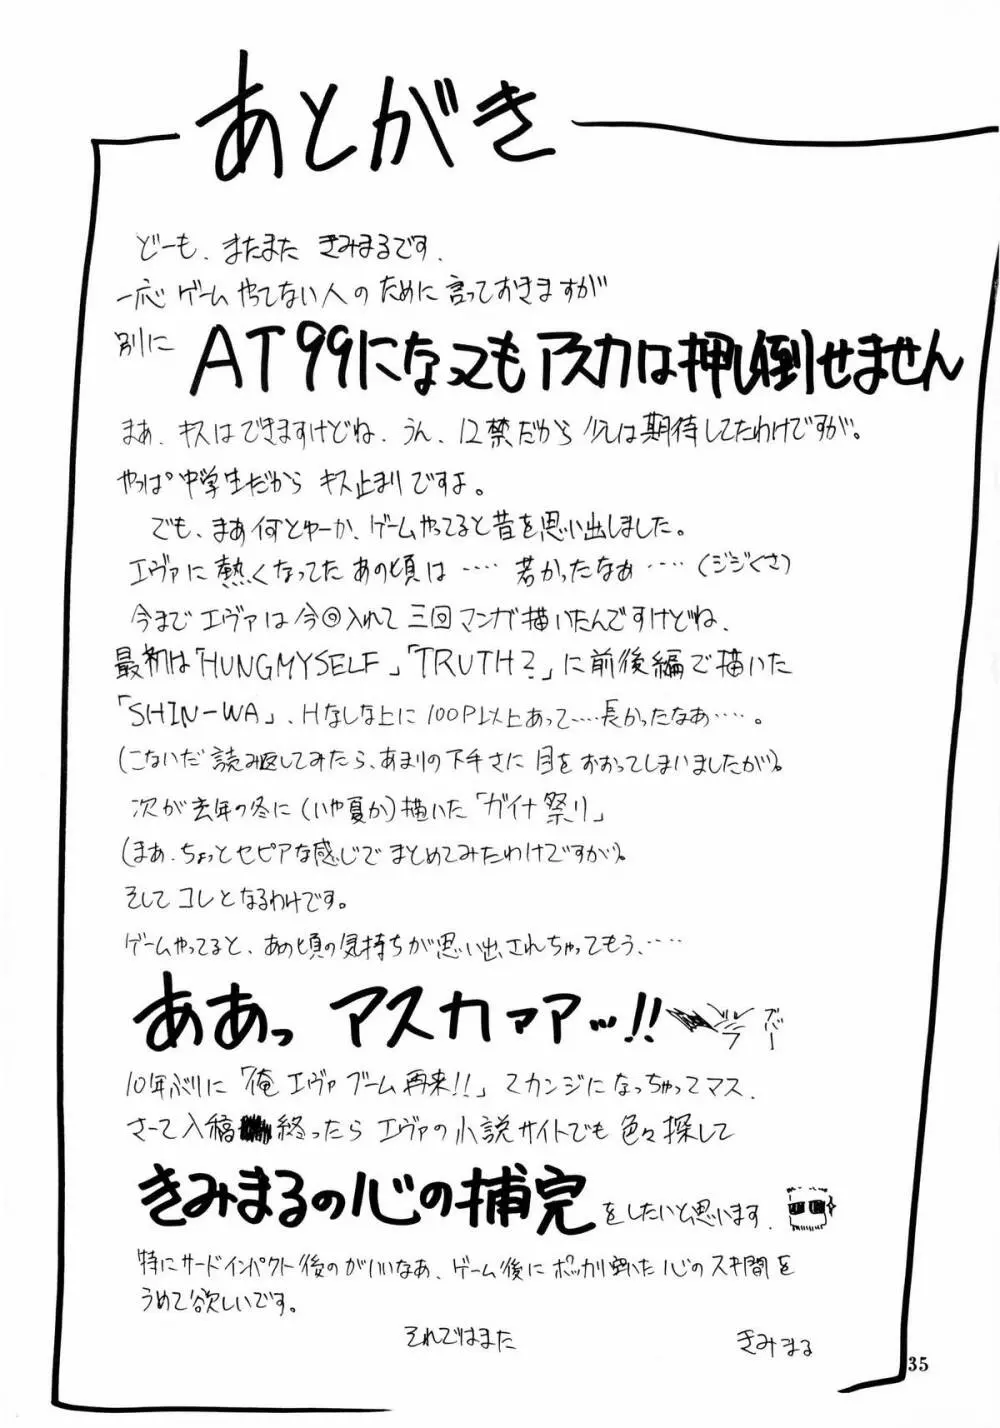 あとがき
どーも、またまた きみまるです.
一応 ゲーム やってない人の ために 言っておきますが
別に AT99になってもアスカは押し倒せません
まあ、キスはできますけどね、うん、12禁だから 少しは期待してたわけですが。
やっぱ中学生だから キス止まりですよ。
でも、まあ何とゆーか、ゲームやってると昔を思い出しました。
エヴァに熱くなってた あの頃は ‥‥ 若かったなぁ‥‥ (ジジくさ)
今まで エヴァは今回入れて 三回マンガ描いたんですけどね、
最初は「HUNGMYSELF」「TRUTH?」に前後編で描いた
「SHIN-WA」、Hなしな上に 100P以上あって‥‥長かったなあ‥‥。
(こないだ 読み返してみたら、あまりの下手さに 目をおおってしまいましたが)。
次が去年の冬に(いや夏か)描いた「ガイナ祭り」
(まあ、ちょっとセピアな感じで まとめてみたわけですが)。
そして コレとなるわけです。
ゲームやってると、あの頃の気持ちが思い出されちゃってもう、‥‥
ああっ アスカァァッ!!
ズバー
10年ぶりに「俺 エヴァ ブーム 再来!!」てカンジになっちゃってマス.
さーて入稿 終ったら エヴァの小説サイトでも 色々探して
きみまるの心の補完をしたいと思います.
特にサードインパクト後のがいいなあ、ゲーム後に ポッカリ空いた 心のスキ間を
うめて欲しいです。
それではまた
きみまる
35